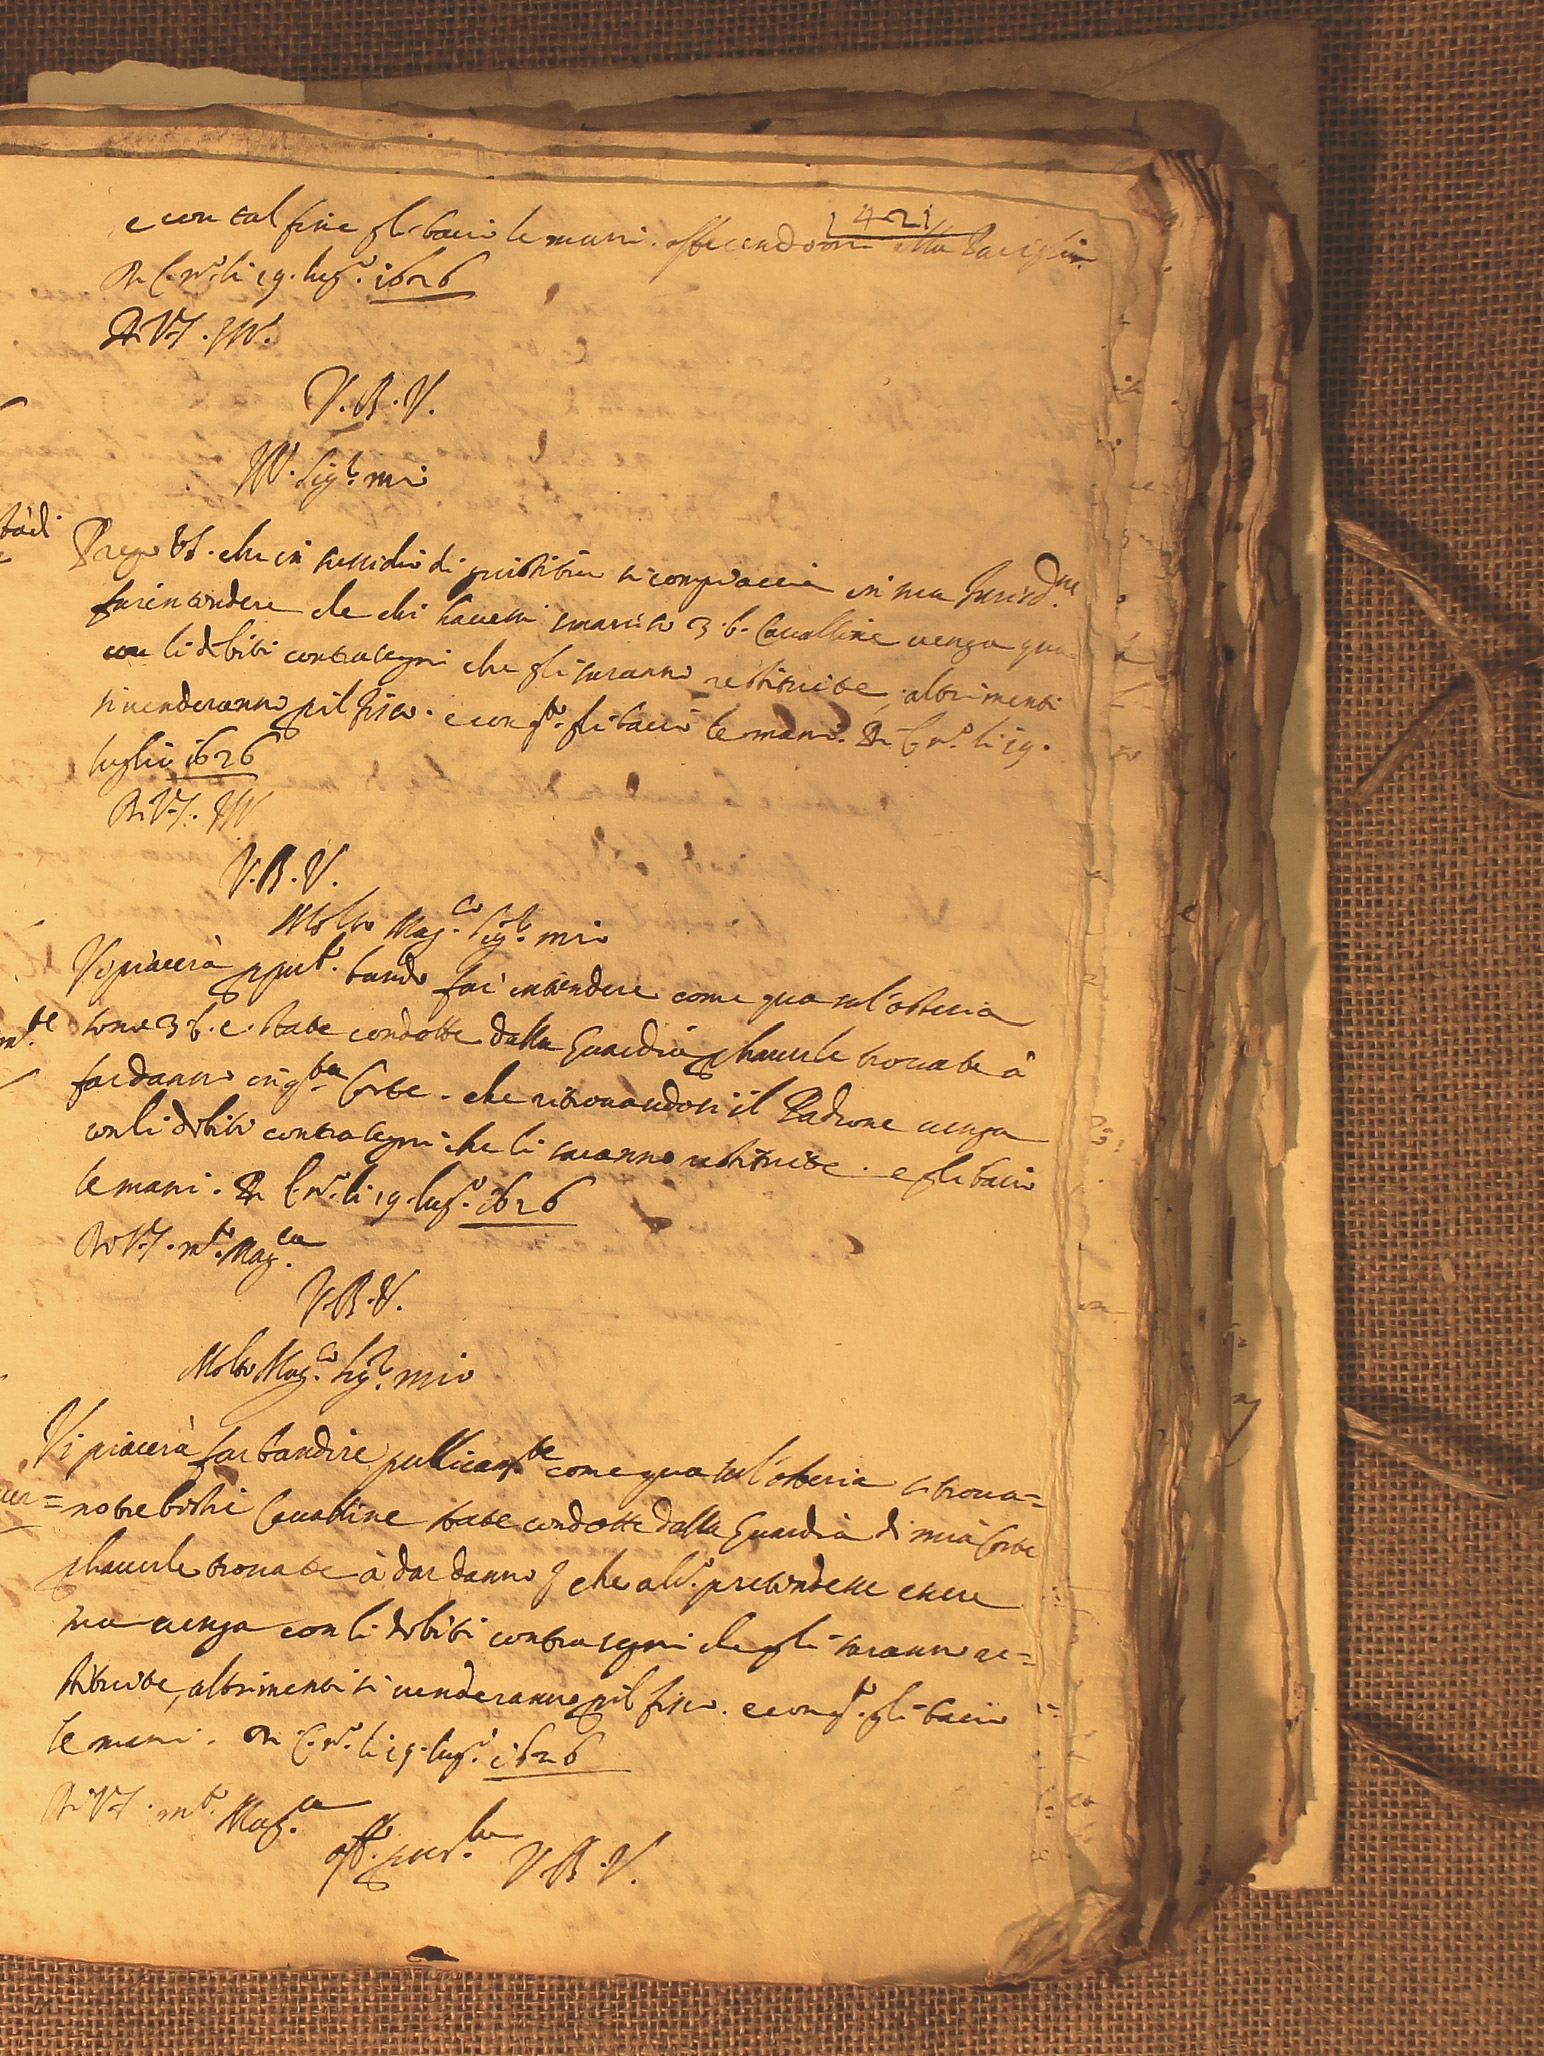 421
e con tal fine gli bacio le mani. offerendomi alla
Di C. nr.o li 19. lug.o 1626
Di V.S. Ill.
V.B.V.
Ill. Sig.r mio
Prego V.S. che in sussidio di giustitia si compiaccia in sua Jurisd.ne
far intendere che chi havessi smarito 3. b. Cavalline venga qua
con li debiti contrasegni che gli saranno restituite, altrimenti
si venderanno p il fisco. e con q.to gli bacio le mani. Di C. nr.o li 19.
luglio 1626
Di V.S. Ill
V.B.V.
Molto Mag.co Sig.r mio
Vi piacerà p pub.o bando far intendere come qua su l'osteria
sono 3 b. c. state condotte dalla Guardia p haverle trovate à
far danno in q.ta Corte. che ritrovandosi il Padrone venga
con li debiti contrasegni che li saranno restituite. e gli bacio
le mani. Di C. nr.o li 19. lug.o 1626
Di V.S. m.to Mag.ca
V.B.V.
Molto Mag.co Sig.r mio
Vi piacerà far bandire publicam.te come qua su l'osteria si trova=
no tre bestie Cavalline state condotte dalla Guardia di mia Corte
p haverle trovate à dar danno che alc.o pretendesse essere
sue venga con li debiti contrasegni che gli saranno re=
stituite, altrimenti si venderanno p il fisco. e con q.to gli bacio
le mani. Di C. nr.o li 19. lug.o 1626
Di V.S. m.to Mag.ca
V.B.V.